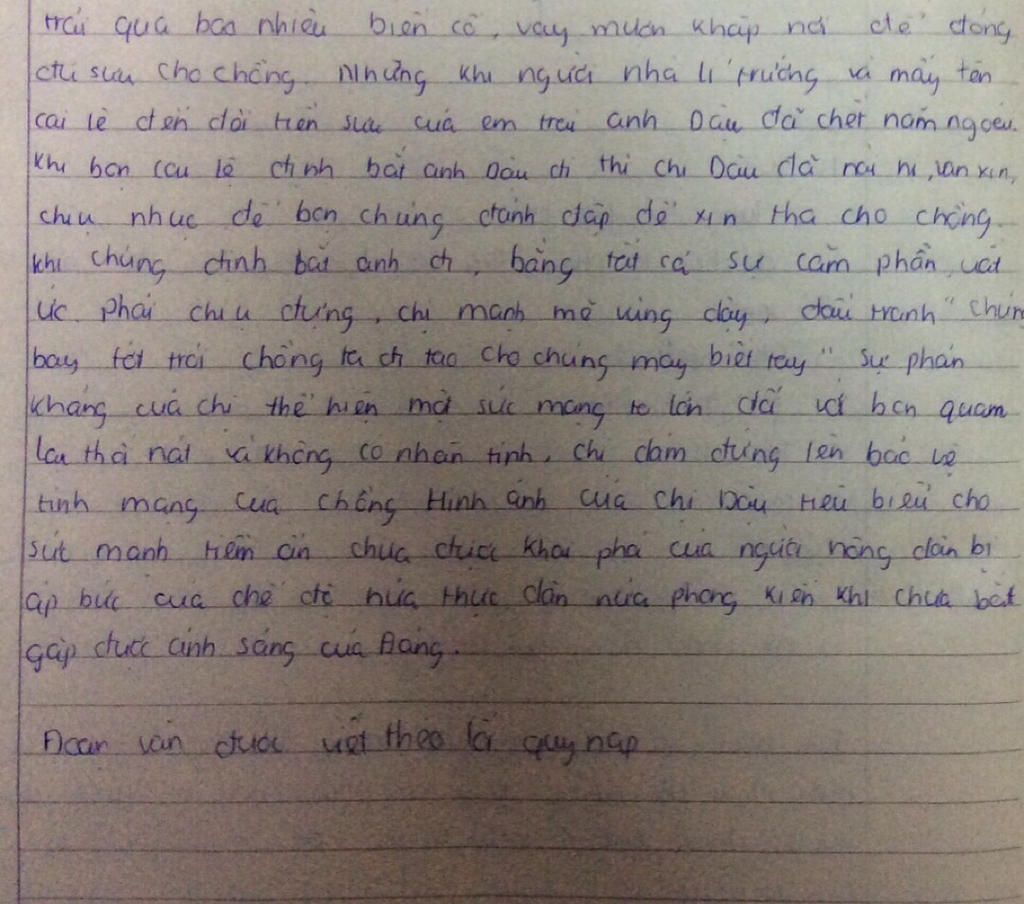 trải qua bao nhiêu biến cố, vay mướn khắp nơi để đóng
đủ sưu cho chồng. Nhưng khi người nhà lí trưởng và mấy tên
cai lệ đến đòi tiền sưu của em trai anh Dậu đã chết năm ngoái.
Khi bọn cai lệ định bắt anh Dậu đi thì chị Dậu đã nài nỉ, van xin,
chịu nhục để bọn chúng đánh đập để xin tha cho chồng.
khi chúng định bắt anh đi, bằng tất cả sự căm phẫn, uất
ức phải chịu đựng, chị mạnh mẽ vùng dậy, đấu tranh "chúng
bay tốt trói chồng ta đi tao cho chúng mày biết tay" sự phản
kháng của chị thể hiện một sức mạng to lớn đối với bọn quam
lại thối nát và không có nhân tính, chị dám đứng lên bảo vệ
tính mạng của chồng Hình ảnh của chị Dậu tiêu biểu cho
sức mạnh tiềm ẩn chưa được khai phá của người nông dân bị
áp bức của chế độ nửa thực dân nửa phong kiến khi chưa bắt
gặp được ánh sáng của Đảng.
Đoạn văn được viết theo lối quy nạp